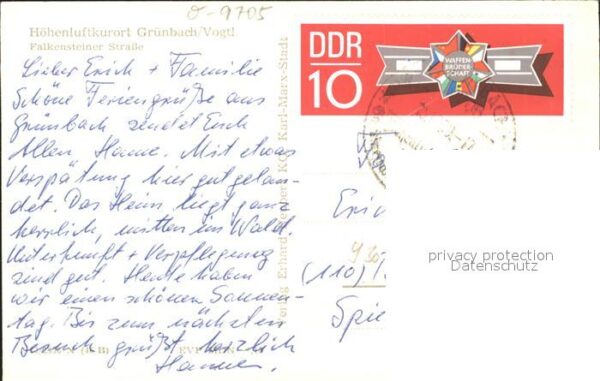 σ-9705
Höhenluftkurort Grünbach/Vogtl.
Falkensteiner Straße
Lieber Erich + Familie
Schöne Feriengrüße aus
Grünbach sendet Euch
Allen, Hanne. Mit etwas
Verspätung hier gut gelan-
det. Das Heim liegt ganz
herrlich, mitten im Wald.
Unterkunft + Verpflegung
sind gut. Heute haben
wir einen schönen Sonnen-
tag. Bis zum nächsten
Besuch grüßt herzlich
Hanne.
Verlag Erhard KG Karl-Marx-Stadt
EVP
DDR
10
WAFFEN-
BRÜDER-
SCHAFT
Eric
(110)
Spie
privacy protection
Datenschutz